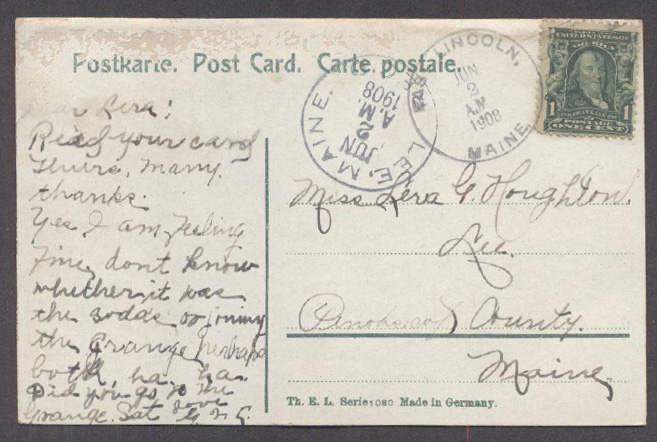 Postkarte. Post Card. Carte postale.
Dear Lera;
Rec'd your card
Thurs, many
thanks.
Yes I am feeling
fine, dont know
whether it was
the sodas or joining
the Grange, perhaps
both, ha. ha.
Did you go to the
Grange. Sat love
LEE, MAINE.
JUN 2 A.M. 1908
EAST LINCOLN, MAINE.
JUN 2 A.M 1908
UNITED STATES OF AMERICA
1 1
POSTAGE
ONE CENT
Miss Lera G. Houghton.
Lee.
Penobscot County.
Maine,
Th. E. L. Serie 1080 Made in Germany.